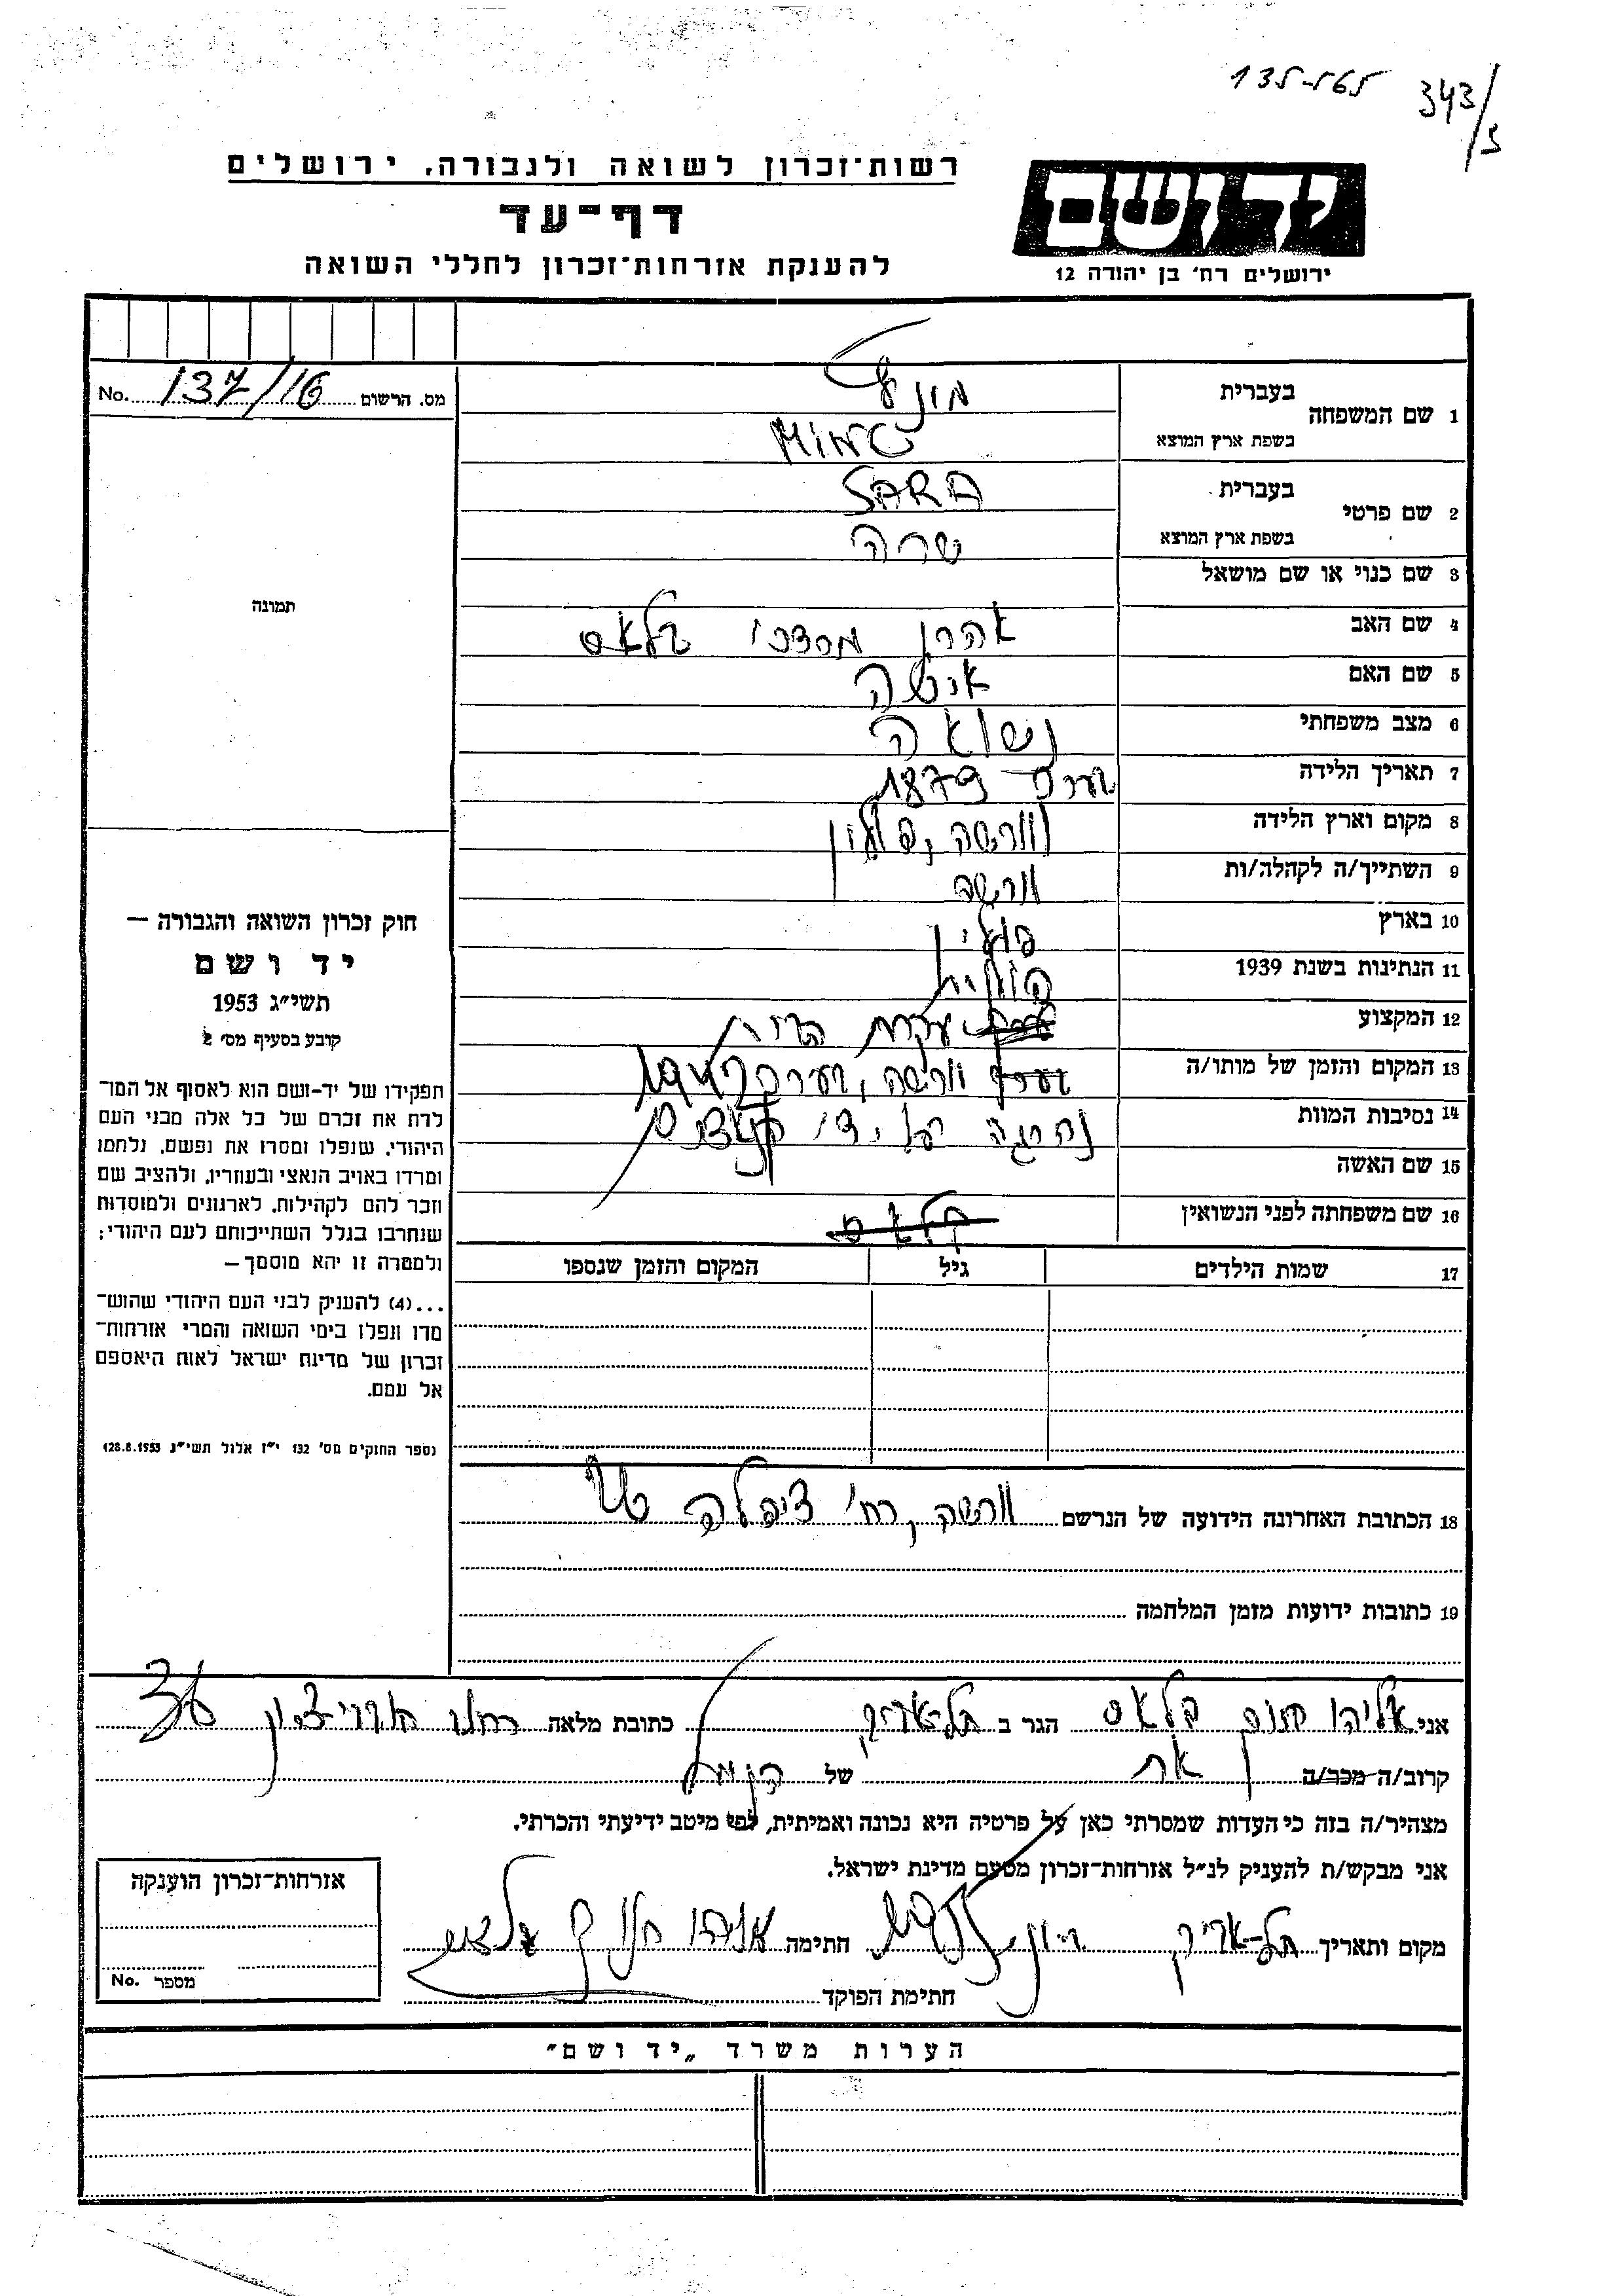 343/3
רשות־זכרון לשואה ולגבורה, ירושלים
דף־עד
להענקת אזרחות־זכרון לחללי השואה
יד ושם
ירושלים רח׳ בן יהודה 12
מס. הרשום 137/16 No.
בעברית
1 שם המשפחה
בשפת ארץ המוצא
MINC
בעברית SARA
2 שם פרטי
בשפת ארץ המוצא שרה
3 שם כנוי או שם מושאל
4 שם האב אהרן מרדכי בלאס
5 שם האם איטה
6 מצב משפחתי נשואה
7 תאריך הלידה 1879
8 מקום וארץ הלידה ווארשה, פולין
9 השתייך/ה לקהלה/ות ורשה
10 בארץ פולין
11 הנתינות בשנת 1939 פולנית
12 המקצוע עקרת הבית
13 המקום והזמן של מותו/ה ורשה, בערך
14 נסיבות המוות נהרגה על ידי הנאצים
15 שם האשה
16 שם משפחתה לפני הנשואין בלאס
17 שמות הילדים גיל המקום והזמן שנספו
תמונה
חוק זכרון השואה והגבורה —
יד ושם
תשי״ג 1953
קובע בסעיף מס׳ 2
תפקידו של יד-ושם הוא לאסוף אל המו־
לדת את זכרם של כל אלה מבני העם
היהודי, שנפלו ומסרו את נפשם, נלחמו
ומרדו באויב הנאצי ובעוזריו, ולהציב שם
וזכר להם לקהילות, לארגונים ולמוסדות
שנחרבו בגלל השתייכותם לעם היהודי;
ולמטרה זו יהא מוסמך —
...(4) להעניק לבני העם היהודי שהוש־
מדו ונפלו בימי השואה והמרי אזרחות־
זכרון של מדינת ישראל לאות היאספם
אל עמם.
(ספר החוקים מס׳ 132 י״ז אלול תשי״ג 28.8.1953)
18 הכתובת האחרונה הידועה של הנרשם ורשה, רח׳ ציפלה
19 כתובות ידועות מזמן המלחמה
אני אליהו חנוך בלאס הגר ב תל-אביב כתובת מלאה
קרוב/ה מכר/ה אח של
מצהיר/ה בזה כי העדות שמסרתי כאן על פרטיה היא נכונה ואמיתית, לפי מיטב ידיעתי והכרתי.
אני מבקש/ת להעניק לנ״ל אזרחות־זכרון מטעם מדינת ישראל.
מקום ותאריך תל-אביב חתימה אליהו חנוך בלאס
חתימת הפוקד
אזרחות־זכרון הוענקה
מספר No.
הערות משרד „יד ושם״